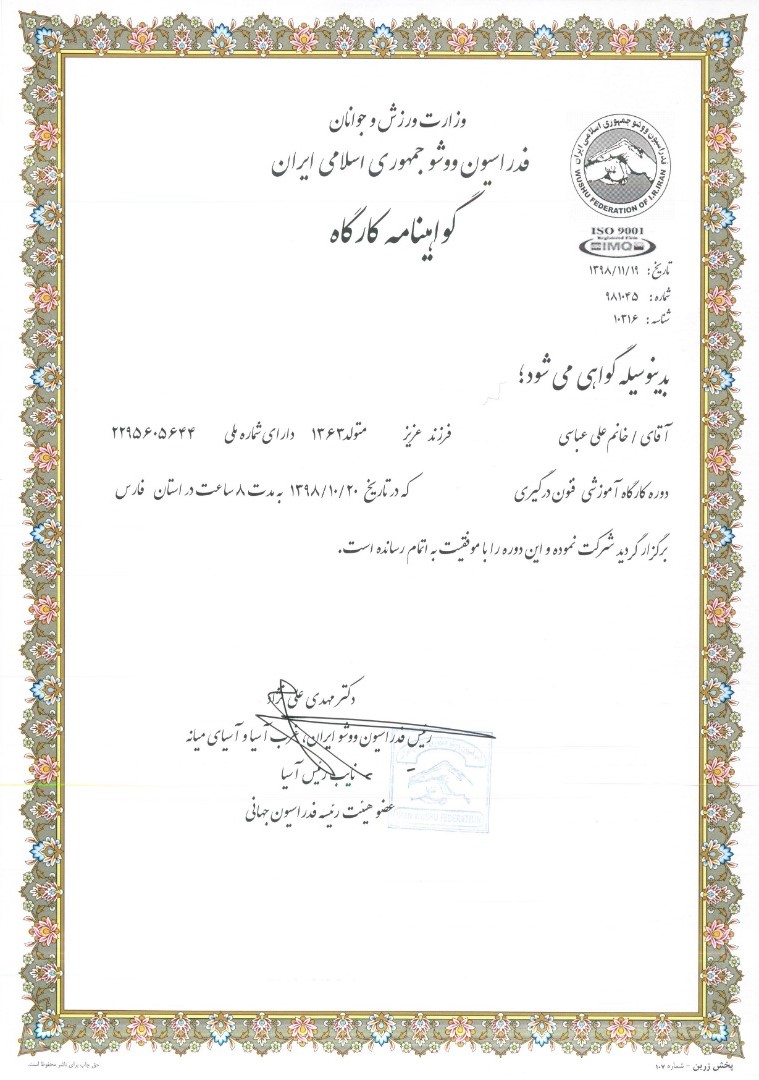 وزارت ورزش و جوانان
فدراسیون ووشو جمهوری اسلامی ایران
گواهینامه کارگاه
فدراسیون ووشو جمهوری اسلامی ایران
WUSHU FEDERATION OF I.R.IRAN
ISO 9001
Registered Firm
SIMQS
تاریخ: ۱۳۹۸/۱۱/۱۹
شماره: ۹۸۱۰۴۵
شناسه: ۱۰۳۱۶
بدینوسیله گواهی می شود؛
آقای / خانم علی عباسی فرزند عزیز متولد ۱۳۶۳ دارای شماره ملی ۲۲۹۵۶۰۵۶۴۴
دوره کارگاه آموزشی فنون درگیری که در تاریخ ۱۳۹۸/۱۰/۲۰ به مدت ۸ ساعت در استان فارس
برگزار گردید شرکت نموده و این دوره را با موفقیت به اتمام رسانده است.
دکتر مهدی علی نژاد
رئیس فدراسیون ووشو ایران، غرب آسیا و آسیای میانه
نایب رئیس آسیا
عضو هیئت رئیسه فدراسیون جهانی
پخش زرین - شماره ۱۰۷
حق چاپ برای ناشر محفوظ است.